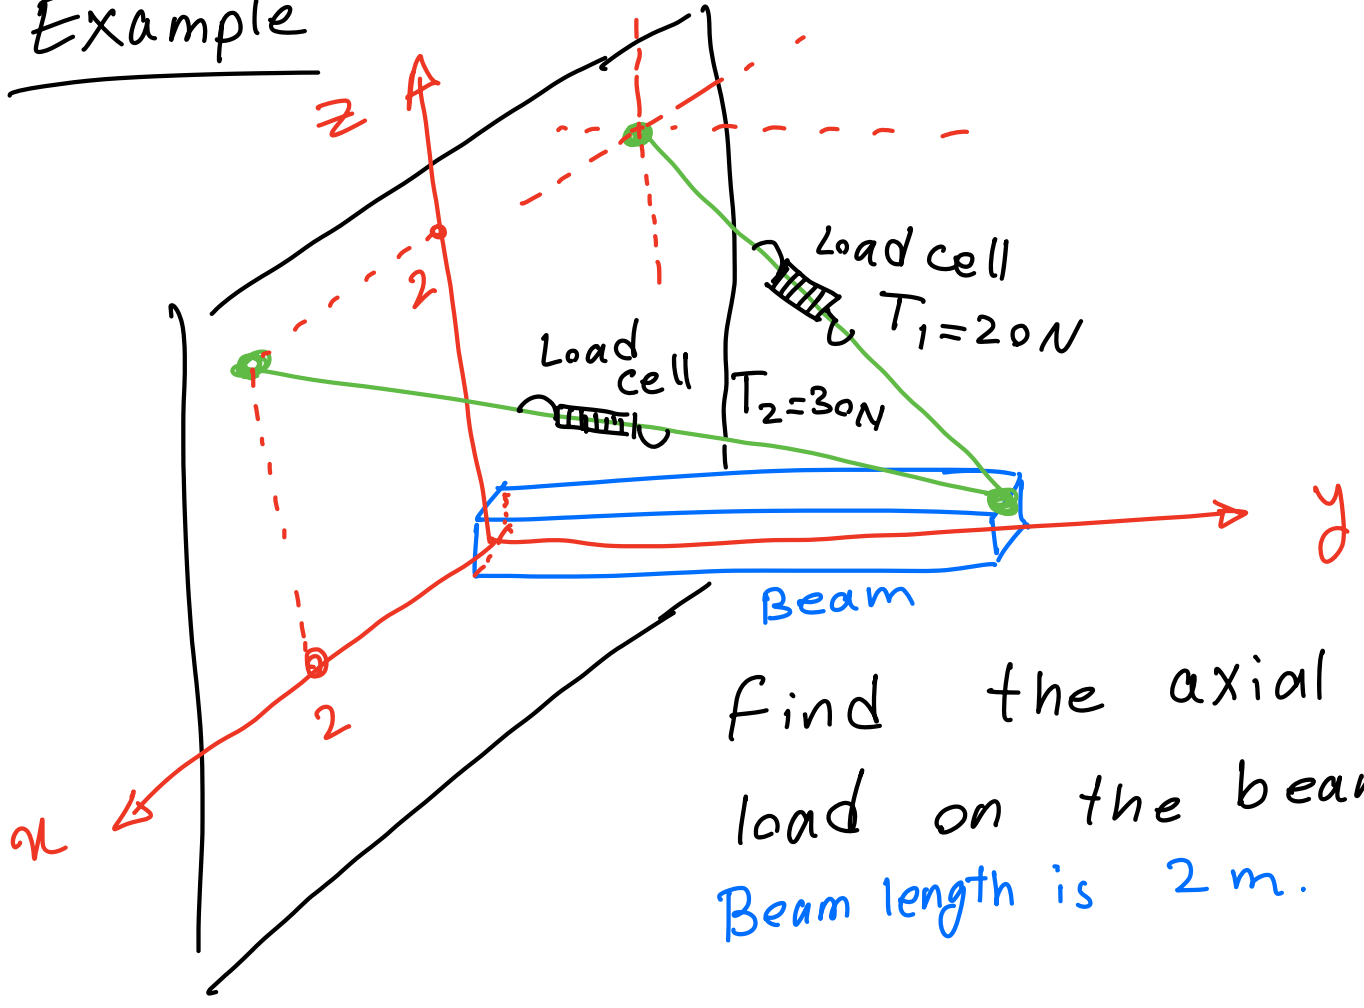 Example
z
2
Load cell
T₁=20N
Load
cell
T₂=30N
y
Beam
2
x
find the axial
load on the bear
Beam length is 2m.